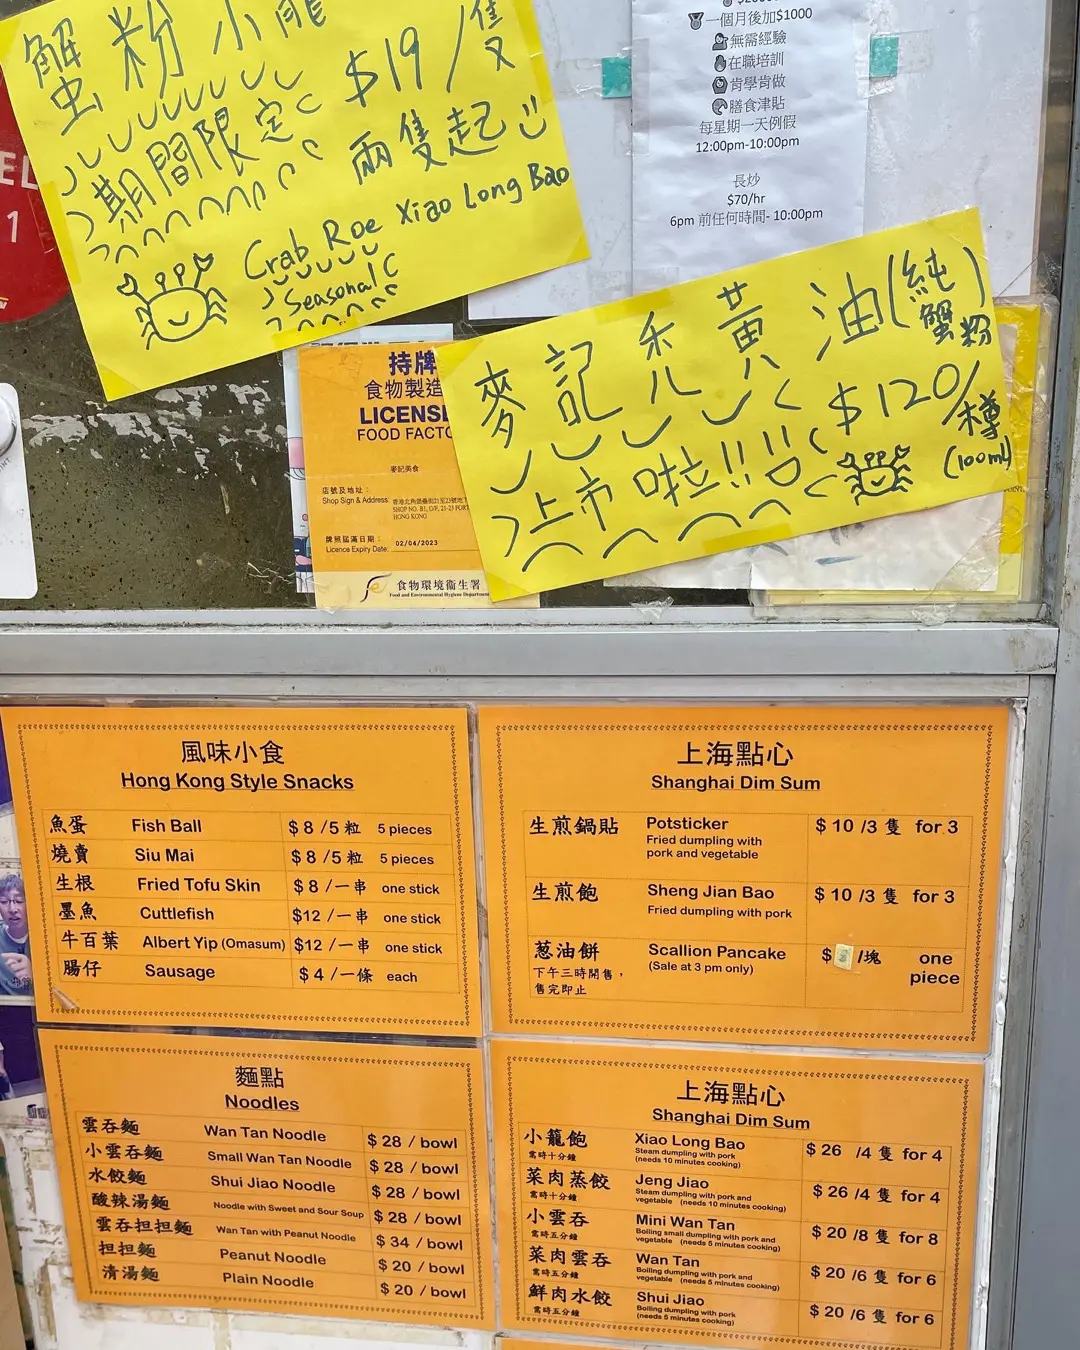 蟹粉小龍
$19/隻
期間限定
兩隻起
Crab Roe Xiao Long Bao
Seasonal
一個月後加$1000
無需經驗
在職培訓
肯學肯做
膳食津貼
每星期一天例假
12:00pm-10:00pm
長炒
$70/hr
6pm 前任何時間- 10:00pm
麥記禿黃油(純蟹粉)
$120/樽
(100ml)
上市啦!!
持牌
食物製造
LICENS
FOOD FACTO
麥記美食
店號及地址：
Shop Sign & Address
SHOP NO. B1, G/F, 21-23 FORT
HONG KONG
牌照屆滿日期：
Licence Expiry Date:
02/04/2023
食物環境衞生署
Food and Environmental Hygiene Department
風味小食
Hong Kong Style Snacks
魚蛋 Fish Ball $8/5粒 5 pieces
燒賣 Siu Mai $8/5粒 5 pieces
生根 Fried Tofu Skin $8/一串 one stick
墨魚 Cuttlefish $12/一串 one stick
牛百葉 Albert Yip (Omasum) $12/一串 one stick
腸仔 Sausage $4/一條 each
上海點心
Shanghai Dim Sum
生煎鍋貼 Potsticker $10/3隻 for 3
Fried dumpling with
pork and vegetable
生煎飽 Sheng Jian Bao $10/3隻 for 3
Fried dumpling with pork
葱油餅 Scallion Pancake $ /塊 one
下午三時開售， (Sale at 3 pm only) piece
售完即止
麵點
Noodles
雲吞麵 Wan Tan Noodle $28/bowl
小雲吞麵 Small Wan Tan Noodle $28/bowl
水餃麵 Shui Jiao Noodle $28/bowl
酸辣湯麵 Noodle with Sweet and Sour Soup $28/bowl
雲吞担担麵 Wan Tan with Peanut Noodle $34/bowl
担担麵 Peanut Noodle $20/bowl
清湯麵 Plain Noodle $20/bowl
上海點心
Shanghai Dim Sum
小籠飽 Xiao Long Bao $26/4隻 for 4
需時十分鐘 Steam dumpling with pork
(needs 10 minutes cooking)
菜肉蒸餃 Jeng Jiao $26/4隻 for 4
需時十分鐘 Steam dumpling with pork and
vegetable (needs 10 minutes cooking)
小雲吞 Mini Wan Tan $20/8隻 for 8
需時五分鐘 Boiling small dumpling with pork and
vegetable (needs 5 minutes cooking)
菜肉雲吞 Wan Tan $20/6隻 for 6
需時五分鐘 Boiling dumpling with pork and
vegetable (needs 5 minutes cooking)
鮮肉水餃 Shui Jiao $20/6隻 for 6
需時五分鐘 Boiling dumpling with pork
(needs 5 minutes cooking)